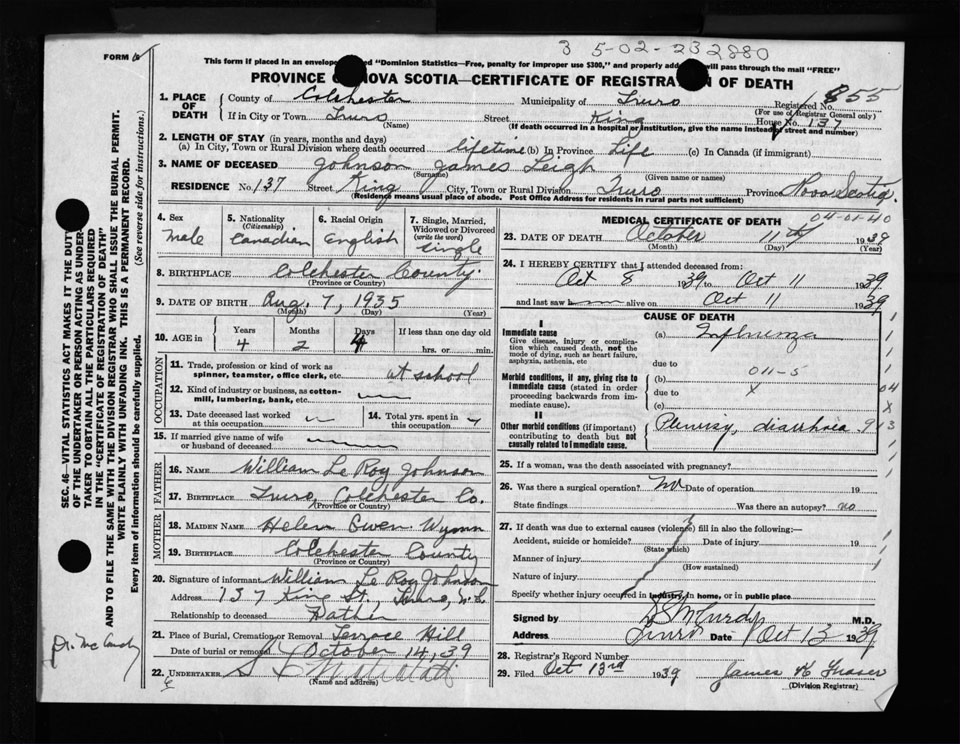 3 5-02-232880
FORM
This form if placed in an envelope "Dominion Statistics—Free, penalty for improper use $300," and properly addressed will pass through the mail "FREE"
PROVINCE OF NOVA SCOTIA—CERTIFICATE OF REGISTRATION OF DEATH
1. PLACE OF DEATH
County of Colchester Municipality of Truro Registered No. 1855
(For use of Registrar General only)
If in City or Town Truro Street King House No. 137
(Name) (If death occurred in a hospital or institution, give the name instead of street and number)
2. LENGTH OF STAY (in years, months and days)
(a) In City, Town or Rural Division where death occurred lifetime (b) In Province Life (c) In Canada (if immigrant)
3. NAME OF DECEASED Johnson James Leigh
(Surname) (Given name or names)
RESIDENCE No. 137 Street King City, Town or Rural Division Truro Province Nova Scotia
(Residence means usual place of abode. Post Office Address for residents in rural parts not sufficient)
4. Sex Male
5. Nationality (Citizenship) Canadian
6. Racial Origin English
7. Single, Married, Widowed or Divorced (write the word) Single
8. BIRTHPLACE Colchester County
(Province or Country)
9. DATE OF BIRTH Aug. 7, 1935
(Month) (Day) (Year)
10. AGE in Years 4 Months 2 Days 4 If less than one day old hrs. or min.
OCCUPATION
11. Trade, profession or kind of work as spinner, teamster, office clerk, etc. at school
12. Kind of industry or business, as cotton-mill, lumbering, bank, etc.
13. Date deceased last worked at this occupation
14. Total yrs. spent in this occupation
15. If married give name of wife or husband of deceased
FATHER
16. NAME William Le Roy Johnson
17. BIRTHPLACE Truro, Colchester Co.
(Province or Country)
MOTHER
18. MAIDEN NAME Helen Gwen Wynn
19. BIRTHPLACE Colchester County
(Province or Country)
20. Signature of informant William Le Roy Johnson
Address 137 King St., Truro, N.S.
Relationship to deceased Father
21. Place of Burial, Cremation or Removal Terrace Hill
Date of burial or removal October 14, 39
22. UNDERTAKER
(Name and address)
MEDICAL CERTIFICATE OF DEATH
04-01-40
23. DATE OF DEATH October 11th 1939
(Month) (Day) (Year)
24. I HEREBY CERTIFY that I attended deceased from:
Oct 8 1939 to Oct 11 1939
and last saw h alive on Oct 11 1939
CAUSE OF DEATH
I
Immediate cause
Give disease, injury or complication which caused death, not the mode of dying, such as heart failure, asphyxia, asthenia, etc
(a) Influenza
due to
Morbid conditions, if any, giving rise to immediate cause (stated in order proceeding backwards from immediate cause).
(b) 011-5
due to x
(c)
04
x
II
Other morbid conditions (if important) contributing to death but not causally related to immediate cause.
Pleurisy, diarrhoea 9 13
25. If a woman, was the death associated with pregnancy?
26. Was there a surgical operation? No Date of operation 19
State findings Was there an autopsy? no
27. If death was due to external causes (violence) fill in also the following:—
Accident, suicide or homicide? Date of injury 19
(State which)
Manner of injury
(How sustained)
Nature of injury
Specify whether injury occurred in industry, in home, or in public place
Signed by M.D.
Address Truro Date Oct 13 1939
28. Registrar's Record Number
29. Filed Oct 13rd 1939 James K Fraser
(Division Registrar)
SEC. 46—VITAL STATISTICS ACT MAKES IT THE DUTY OF THE UNDERTAKER OR PERSON ACTING AS UNDERTAKER TO OBTAIN ALL THE PARTICULARS REQUIRED IN THE "CERTIFICATE OF REGISTRATION OF DEATH"
AND TO FILE THE SAME WITH THE DIVISION REGISTRAR WHO SHALL ISSUE THE BURIAL PERMIT.
WRITE PLAINLY WITH UNFADING INK. THIS IS A PERMANENT RECORD.
Every item of information should be carefully supplied. (See reverse side for instructions.)